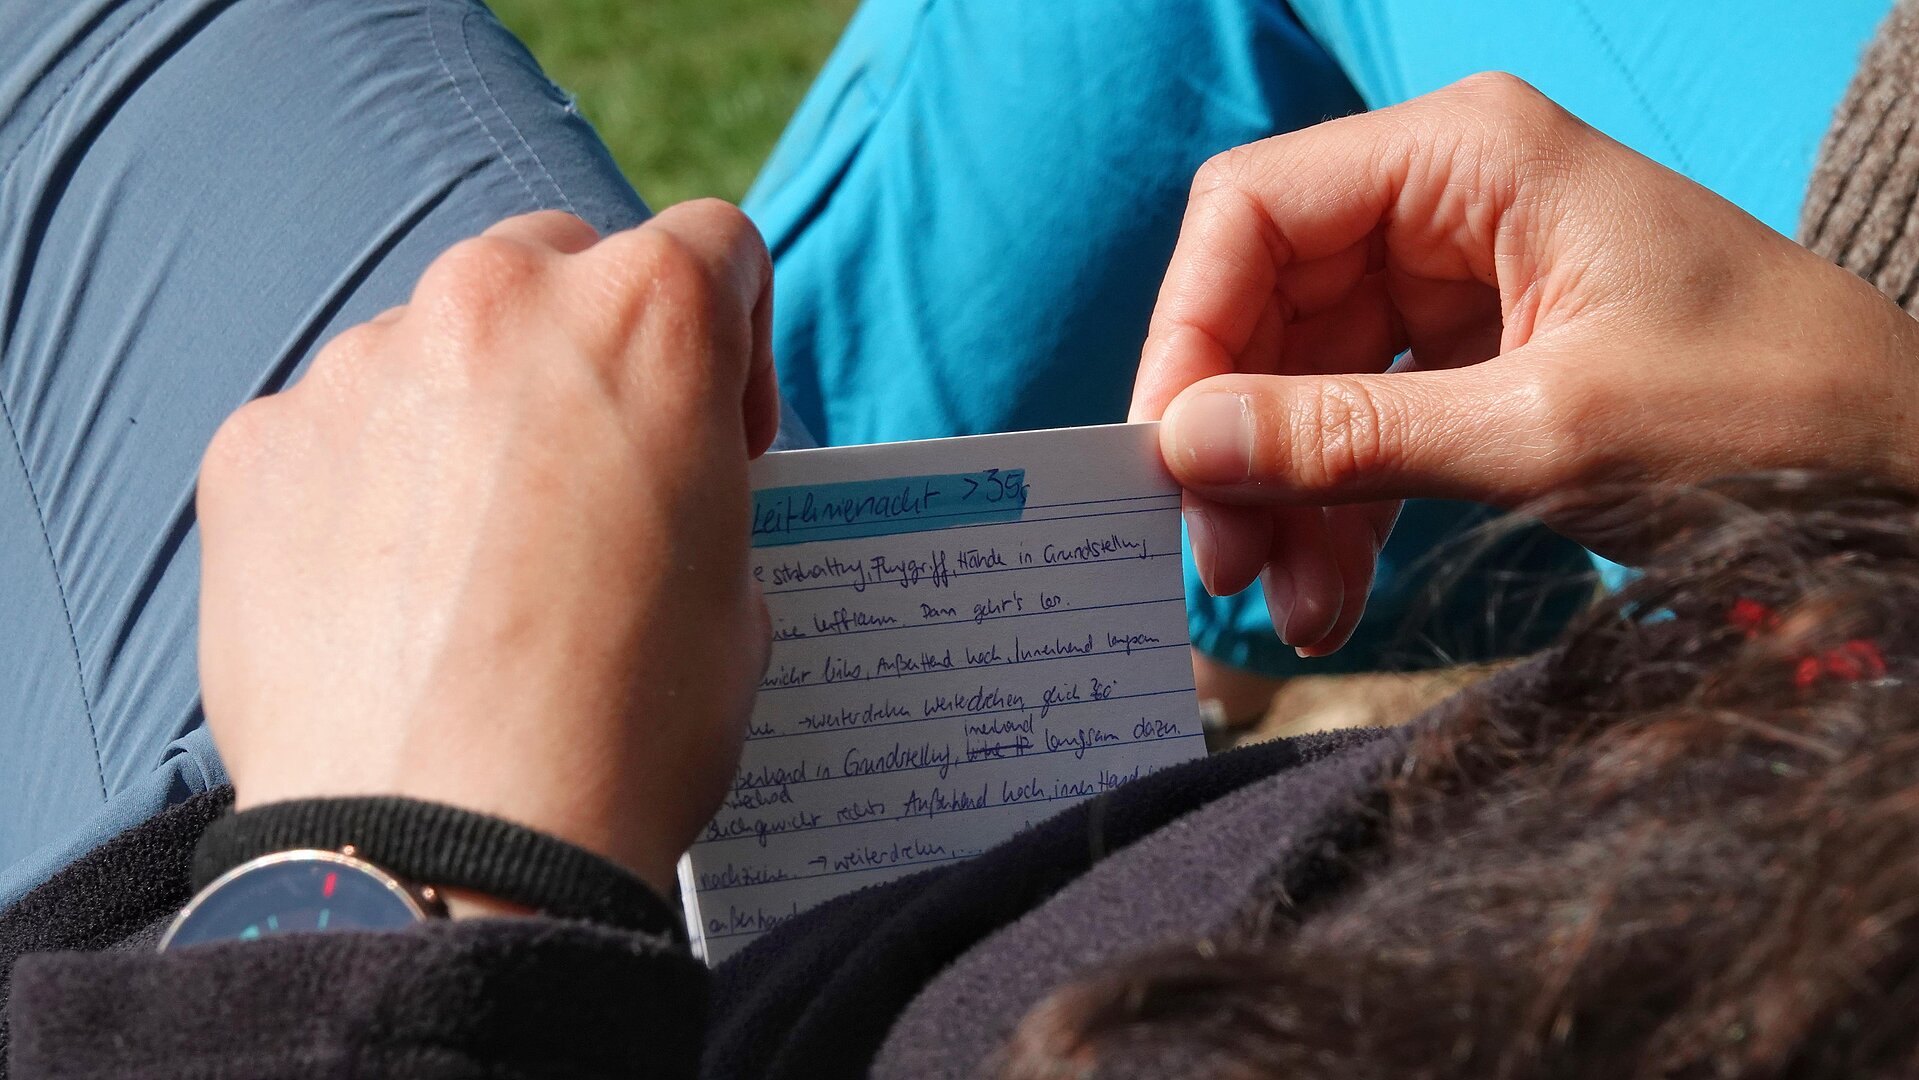 Leitlinienacht >35s
e sitzhaltung, Fluggriff, Hände in Grundstellung,
Luftraum. Dann geht's los.
wicht links, Außenhand hoch, Innenhand langsam
→weiterdrehen weiterdrehen, gleich 360°
ßenhand in Grundstellung, innenhand langsam dazu.
wechsel
gewicht rechts Außenhand hoch, innenHand
nachziehen. → weiterdrehen,...
außenhand